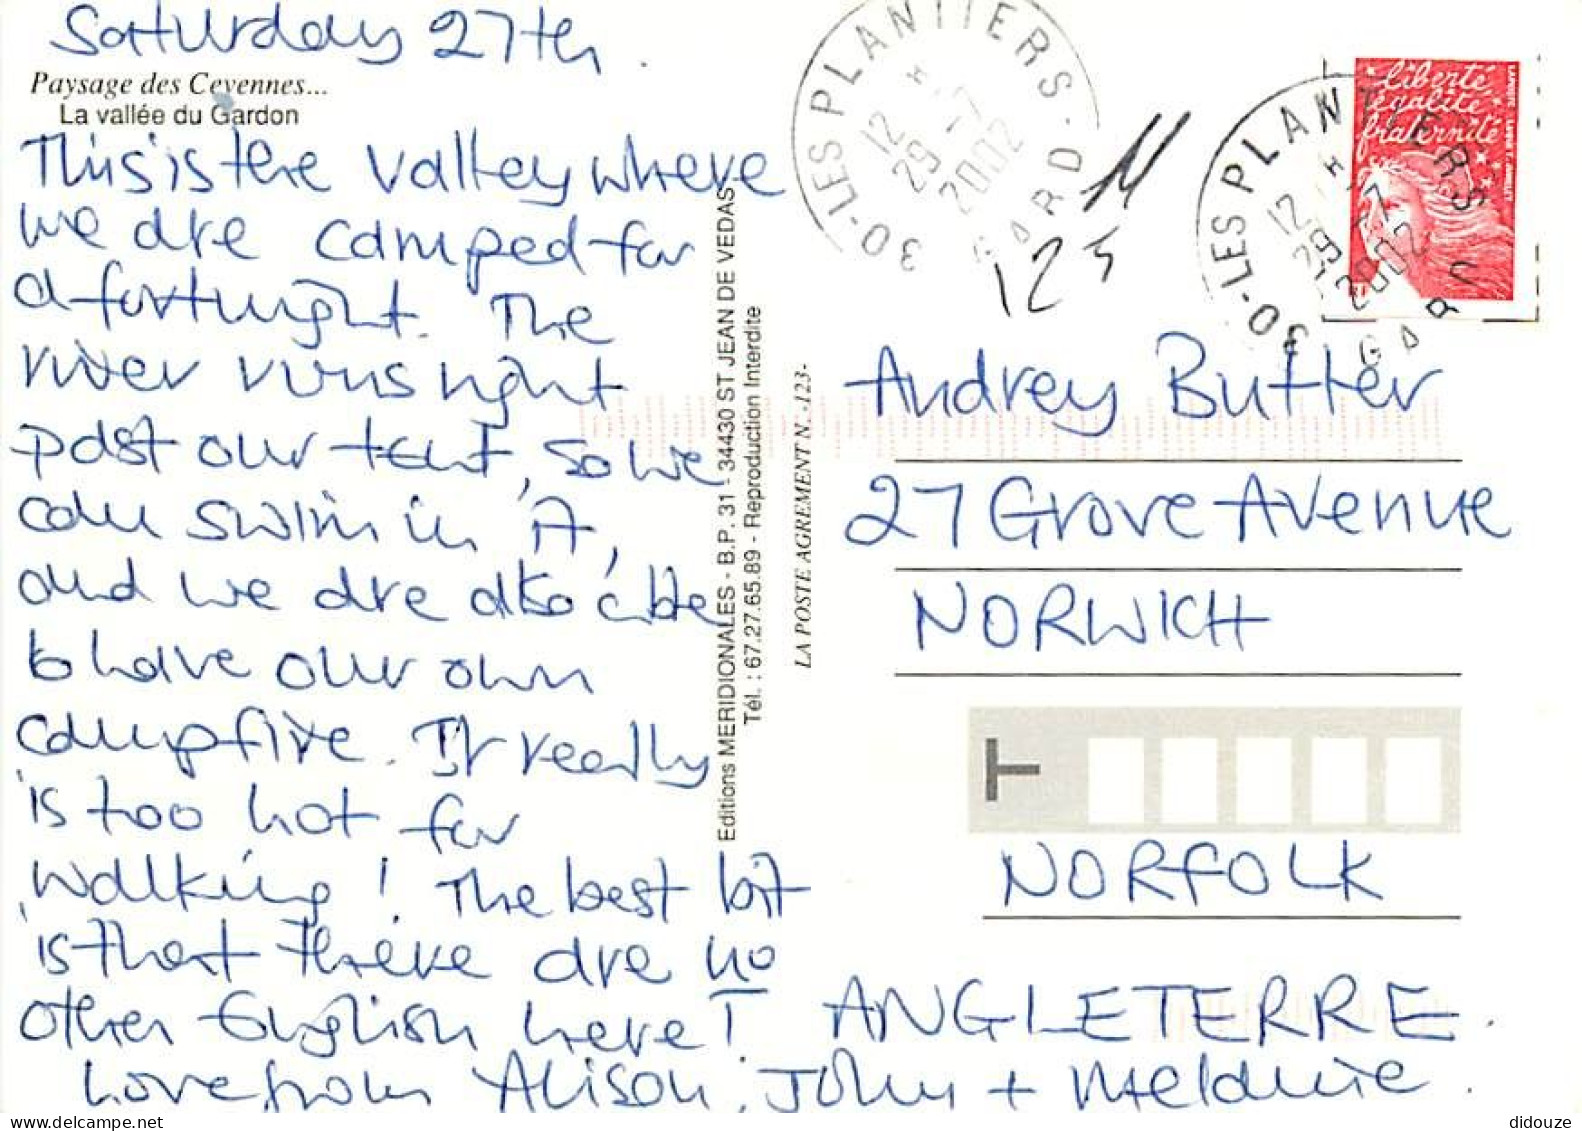 Saturday 27th.
Paysage des Cevennes...
La vallée du Gardon
This is the valley where
we are camped for
a fortnight. The
river runs right
past our tent, so we
can swim in it,
and we are also able
to have our own
campfire. It really
is too hot for
walking! The best bit
is that there are no
other English here!
Love from Alison, John + Melanie.
Editions MERIDIONALES - B.P. 31 - 34430 ST JEAN DE VEDAS
Tél. : 67.27.65.89 - Reproduction Interdite
LA POSTE AGREMENT N. -123-
30-LES PLANTIERS-GARD
12 H
29-7
2002
125
30-LES PLANTIERS GARD
12 H
29-7
2002
liberté
égalité
fraternité
Audrey Butter
27 Grove Avenue
NORWICH
T
NORFOLK
ANGLETERRE.
didouze